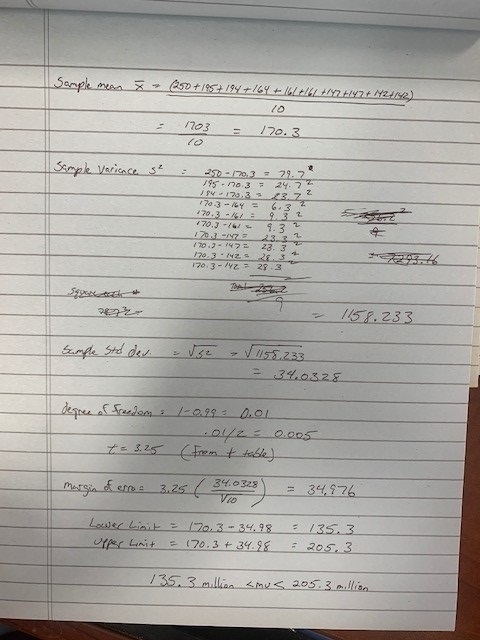 Sample mean x̄ = (250+195+194+164+161+161+147+147+142+142)
10
= 1703 = 170.3
10
Sample Varicance s² = 250-170.3 = 79.7²
195-170.3 = 24.7²
194-170.3 = 23.7²
170.3-164 = 6.3²
170.3-161 = 9.3²
170.3-161 = 9.3²
170.3-147 = 23.3²
170.3-147 = 23.3²
170.3-142 = 28.3²
170.3-142 = 28.3²
9
= 1158.233
Sample Std dev. = √s2 = √1158.233
= 34.0328
degree of freedom = 1-0.99 = 0.01
.01/2 = 0.005
t = 3.25 (from t table)
margin of erro = 3.25 (34.0328/√10) = 34.976
Lower Limit = 170.3-34.98 = 135.3
Upper Limit = 170.3+34.98 = 205.3
135.3 million <mu< 205.3 million